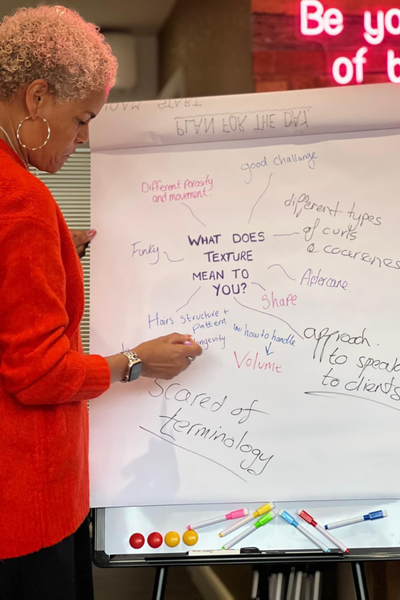 Be yo
of b
START
PLAN FOR THE DAY
good challenge
Different Porosity
and movement
different types
of curls
& coarseness
Funky
WHAT DOES
TEXTURE
MEAN TO
YOU?
Aftercare
Shape
Hairs structure +
pattern
longevity
how to handle
Volume
approach.
to speak
to clients
Scared of
terminology